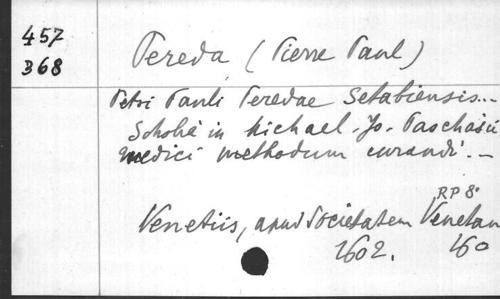 457
B68
Pereda (Pierre Paul)
Petri Pauli Peredae Setabiensis...
Scholiè in Michael. Jo. Paschasii
medici methodum curandi. —
RP 8°
Venetiis, apud Societatem Venetam
1602. 160